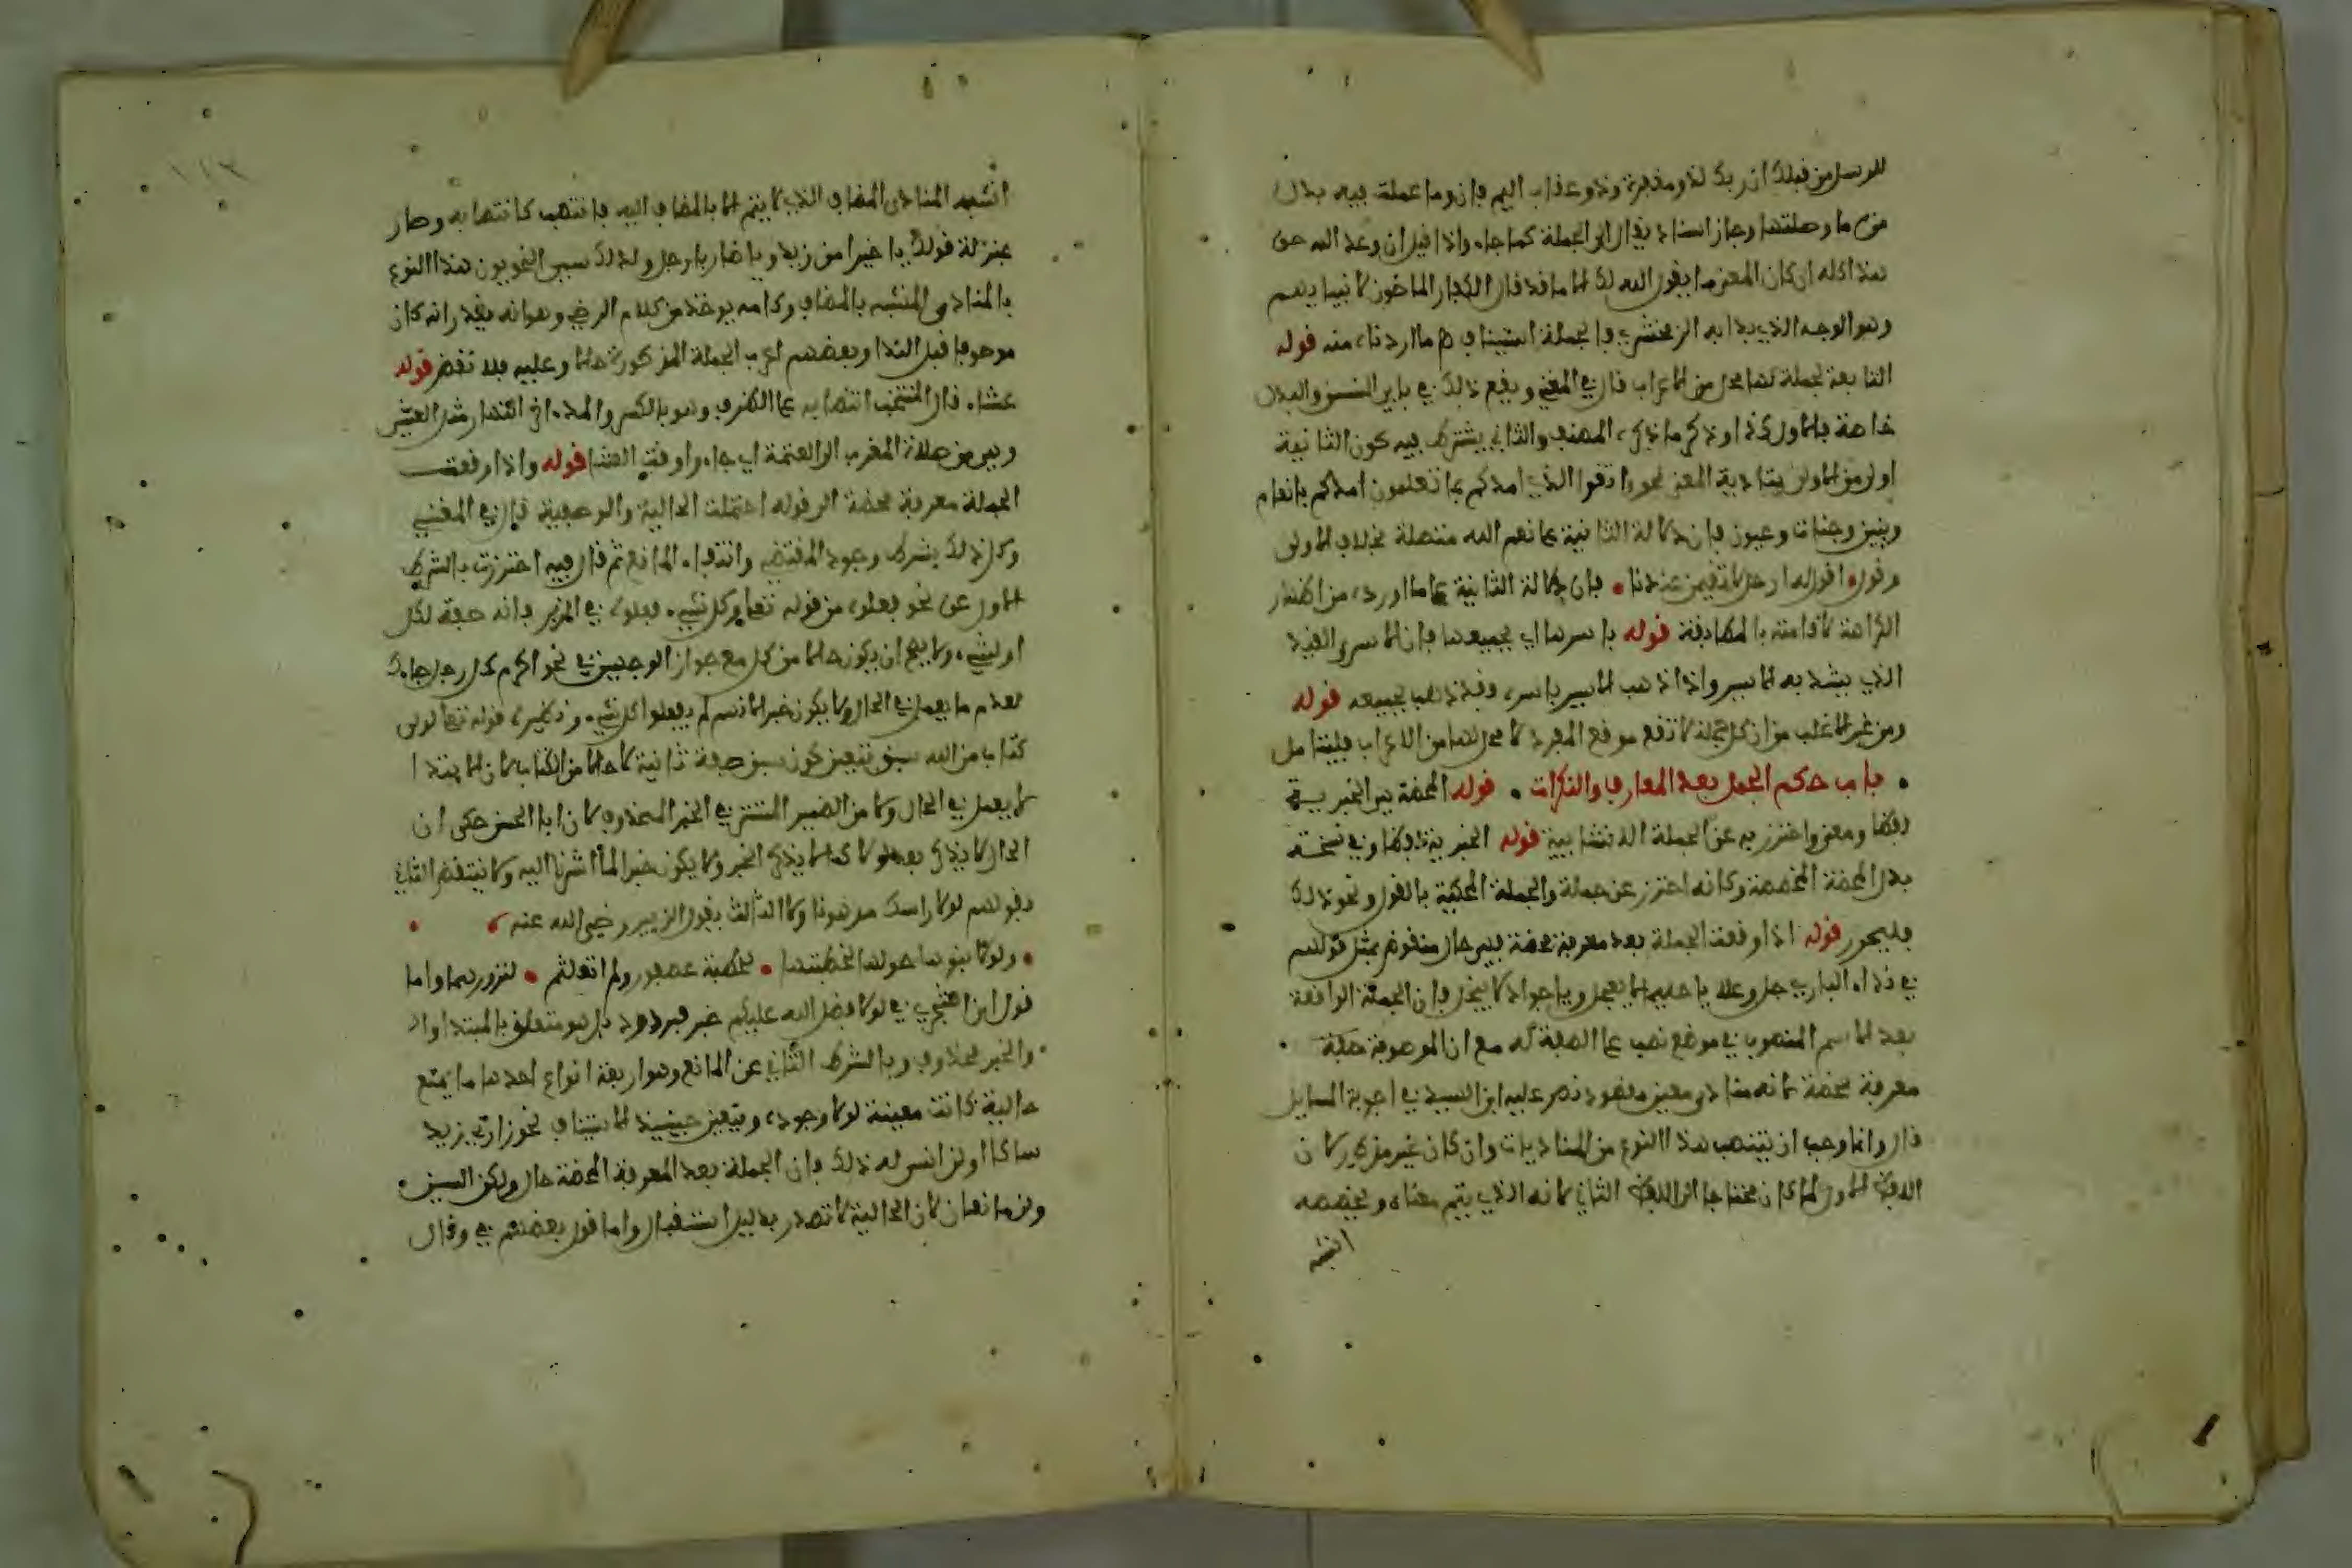 للرسل من قبلك ان ربك لذو مغفرة وذو عقاب اليم فإن وما عملت فيه بدل
من ما وصلتها وجاز اسناد يقال الى الجملة كما جاء واذا قيل ان وعد الله حق
هذا كله ان كان المعنى ما يقول الله لك الا ما قد قال الكفار الماضون لانبيايهم
وهو الوجه الذي بدا به الزمخشري فالجملة استيناف ه ما اردناه منه قوله
التابعة لجملة لها محل من الاعراب قال في المغني ويقع ذلك في بابي النسق والبدل
خاصة فالاول كذا وذكر ما ذكره المصنف والثاني يشترط فيه كون الثانية
اولى من الاولى بتادية المعنى نحو واتقوا الذي امدكم بما تعلمون امدكم بانعام
وبنين وجنات وعيون فإن دلالة الثانية على نعم الله مفصلة بخلاف الاولى
وقوله اقول له ارحل لا تقيمن عندنا • فإن دلالة الثانية على ما اورده من اظهار
الكراهة لاقامته بالمطابقة قوله باسرها اي بجميعها فإن الاسر القيد
الذي يشد به الاسير واذا ذهب الاسير باسره فقد ذهب بجميعه قوله
ومن غير الاغلب من ان كل جملة لا تقع موقع المفرد لا محل لها من الاعراب فليتامل
• باب حكم الجمل بعد المعارف والنكرات • قوله المحضة يعني الخبرية
لفظا ومعنى واحترز به عن الجملة الانشايية قوله الخبرية لفظا وفي نسخة
بدل المحضة المخصصة وكانه احترز عن جملة والجملة المحكية بالقول ونحو ذلك
فليحرر قوله اذا وقعت الجملة بعد معرفة محضة فهي حال منقوض بمثل قولهم
في نداء الباري جل وعلا يا حليما لا يعجل ويا جوادا لا يبخل فإن الجملة الواقعة
بعد الاسم المنصوب في موضع نصب على الصفة له مع ان الموصوف حقه
معرفة محضة لانه منادى معين مقصود نص عليه ابن السيد في اجوبة المسايل
قال وانما وجب ان ينتصب هذا النوع من المناديات وان كان غير منكور لان
اللفظ الاول لما كان محتاجا الى اللفظ الثاني لانه الذي يتم معناه ويخصصه
اشبه
اشبه المنادى المضاف الذي لا يتم الا بالمضاف اليه فانتصب كانتصابه وصار
بمنزلة قولك يا خيرا من زيد ويا ضاربا رجلا ولذلك سمى النحويون هذا النوع
بالمنادى المشبه بالمضاف وكلامه يوخذ من كلام الرضي وهو انه يقدر انه كان
موصوفا قبل الندا وبعضهم اعرب الجملة المذكورة حالا وعليه فلا نقض قوله
عشاء قال المنتخب انتصابه على الظرف وهو بالكسر والمد اخر النهار
وهي من صلاة المغرب الى العتمة اي جاءوا وقت العشا قوله واذا وقعت
الجملة معرفة محضة الى قوله احتملت الحالية والوصفية قال في المغني
وكل ذلك بشرط وجود المقتضي وانتفاء المانع ثم قال فيه احترزت بالشرط
الاول عن نحو فعلوه من قوله تعالى وكل شيء فعلوه في الزبر فانه صفة لكل
او لشيء ولا يصح ان يكون حالا من كل مع جواز الوجهين في نحو اكرم كل رجل جاءك
لعدم ما يعمل في الحال ولا يكون خبرا لانهم لم يفعلوا كل شيء ونظيره قوله تعالى لولا
كتاب من الله سبق يتعين كون سبق صفة ثانية لا حالا من الكتاب لان الابتدا
لا يعمل في الحال ولا من الضمير المستتر في الخبر المحذوف لان ابا الحسن حكى ان
الحال لا يذكر بعد لولا كما لا يذكر الخبر ولا يكون خبرا لما اشرنا اليه ولا ينتقض الثاني
بقولهم لولا راسك مدهونا ولا الثالث بقول الزبير رضي الله عنه
• ولولا بنوها حولها لخبطتها • كخبطة عصفور ولم اتلعثم • لندورهما واما
قول ابن الشجري في لولا فضل الله عليكم خبر فمردود بل هو متعلق بالمبتدا
والخبر محذوف وبالشرط الثاني عن المانع وهو اربعة انواع احدها ما يمنع
حالية كانت معينة لولا وجوده ويتعين حينيذ الاستيناف نحو زارني زيد
ساكا او لن انس له ذلك فإن الجملة بعد المعرفة المحضة حال ولكن السين
ولن مانعان لان الحالية لا تصدر بدليل استقبال واما قول بعضهم في وقال